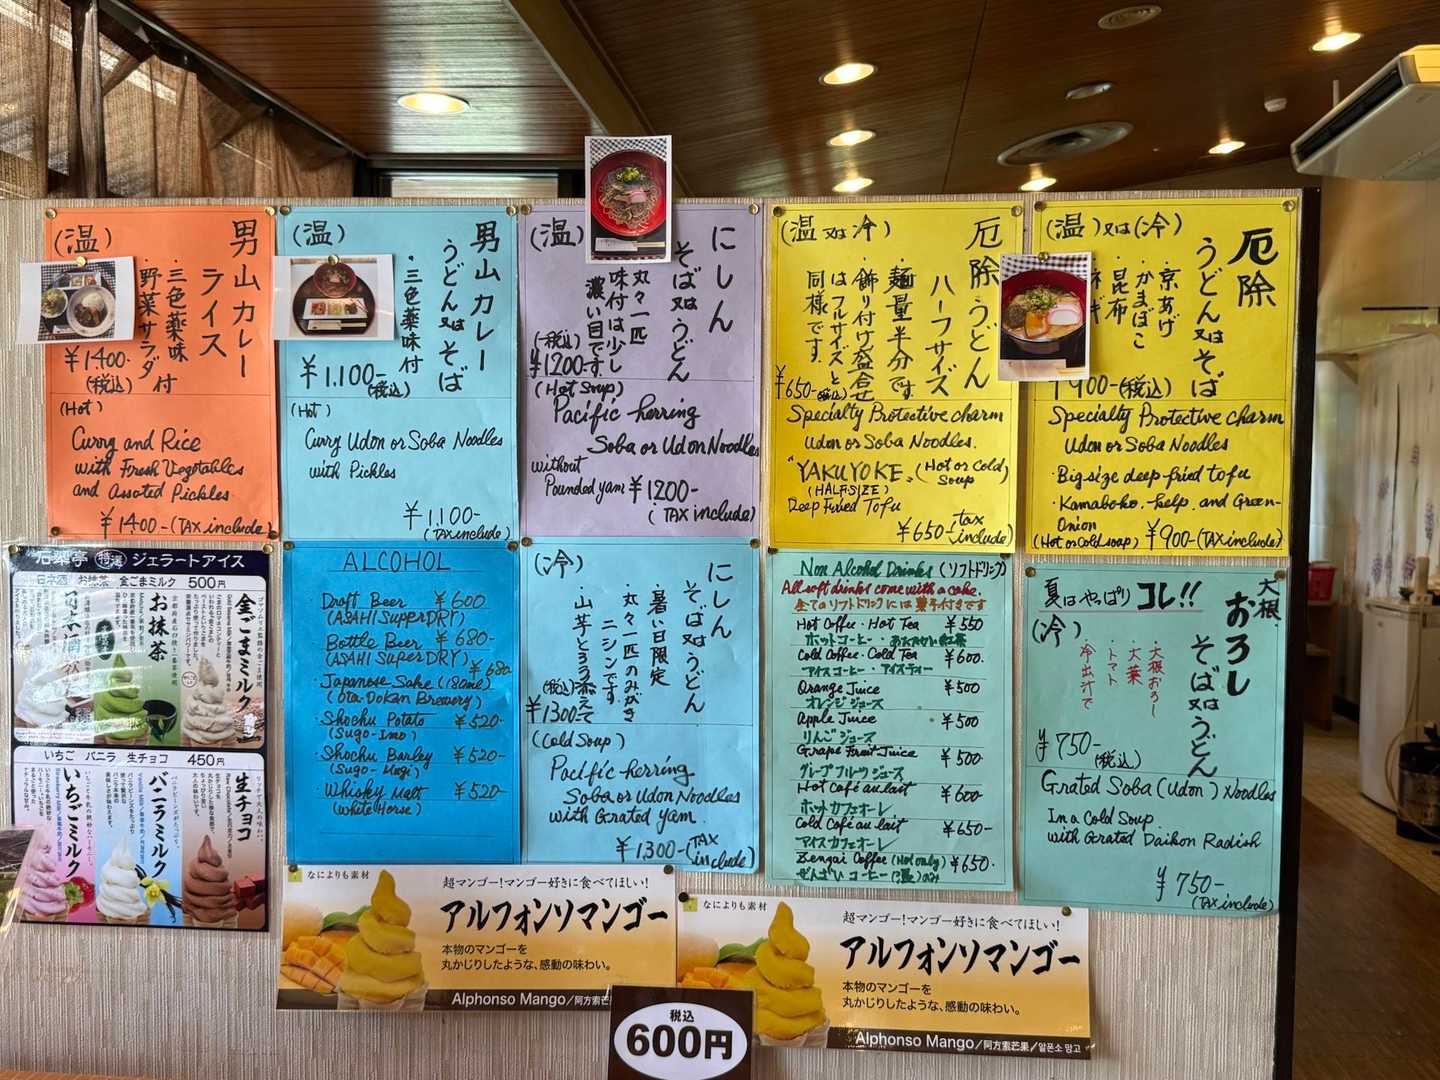 (温)
男山カレー
ライス
・三色薬味付
・野菜サラダ
¥1400-
(税込)
(Hot)
Curry and Rice
with Fresh Vegetables
and Assoted Pickles
¥1400-(TAX include)
(温)
男山カレー
うどん又はそば
・三色薬味付
¥1.100-
(税込)
(Hot)
Curry Udon or Soba Noodles
with Pickles
¥1.100-
(TAX include)
(温)
にしん
そば又はうどん
丸々一匹
味付は少し
濃い目です
(税込)
¥1200-
(Hot Soup)
Pacific herring
Soba or Udon Noodles
without
Pounded yam ¥1200-
(TAX include)
(温 又は 冷)
厄除うどん
ハーフサイズ
・麺量半分です
・飾り付け盛合せ
はフルサイズと
同様です。
¥650-(税込)
Specialty Protective charm
Udon or Soba Noodles.
"YAKUYOKE" (Hot or Cold)
Soup
(HALFSIZE)
Deep Fried Tofu
¥650-(tax
include)
(温)又は(冷)
厄除
うどん又はそば
・京あげ
・かまぼこ
・昆布
900-(税込)
Specialty Protective charm
Udon or Soba Noodles
・Big size deep-fried tofu
・Kamaboko-kelp. and Green-
Onion
(Hot or Cold soup) ¥900-(TAX include)
石翠亭 特選 ジェラートアイス
日本酒 お抹茶 金ごまミルク 500円
お抹茶
金ごまミルク
いちご バニラ 生チョコ 450円
いちごミルク
バニラミルク
生チョコ
ALCOHOL
Draft Beer ¥600
(ASAHI SupperDRY)
・Bottle Beer ¥680-
(ASAHI SuperDRY)
・Japanese Sake (180ml) ¥680
(Ota Dokan Brewery)
・Shochu Potato ¥520-
(Sugo-Imo)
・Shochu Barley ¥520-
(Sugo-Mugi)
・Whisky Malt ¥520-
(White Horse)
(冷)
にしん
そば又はうどん
・暑い日限定
・丸々一匹のみがき
ニシンです。
・山芋とろろ添えて
(税込)
¥1300-
(Cold Soup)
Pacific herring
Soba or Udon Noodles
with Grated yam.
¥1.300-(TAX
include)
Non Alcohol Drinks (ソフトドリンク)
All soft drinks come with a cake.
全てのソフトドリンクには菓子付きです
Hot Coffee・Hot Tea ¥550
ホットコーヒー・あたたかい紅茶
Cold Coffee・Cold Tea ¥600.
アイスコーヒー・アイスティー
Orange Juice ¥500
オレンジジュース
Apple Juice ¥500
りんごジュース
Grape Fruit Juice ¥500
グレープフルーツジュース
Hot Café au lait ¥600
ホットカフェオーレ
Cold Café au lait ¥650-
アイスカフェオーレ
Zengai Coffee (Hot only) ¥650.
ぜんざいコーヒー(温)のみ
夏はやっぱりコレ!!
(冷)
大根おろし
そば又はうどん
・大根おろし
・大葉
・トマト
冷出汁で
¥750-
(税込)
Grated Soba (Udon) Noodles
In a Cold Soup
with Grated Daikon Radish
¥750-
(TAX include)
なによりも素材
超マンゴー!マンゴー好きに食べてほしい!
アルフォンソマンゴー
本物のマンゴーを
丸かじりしたような、感動の味わい。
Alphonso Mango/阿方索芒果
なによりも素材
超マンゴー!マンゴー好きに食べてほしい!
アルフォンソマンゴー
本物のマンゴーを
丸かじりしたような、感動の味わい。
Alphonso Mango/阿方索芒果/알폰소 망고
税込
600円